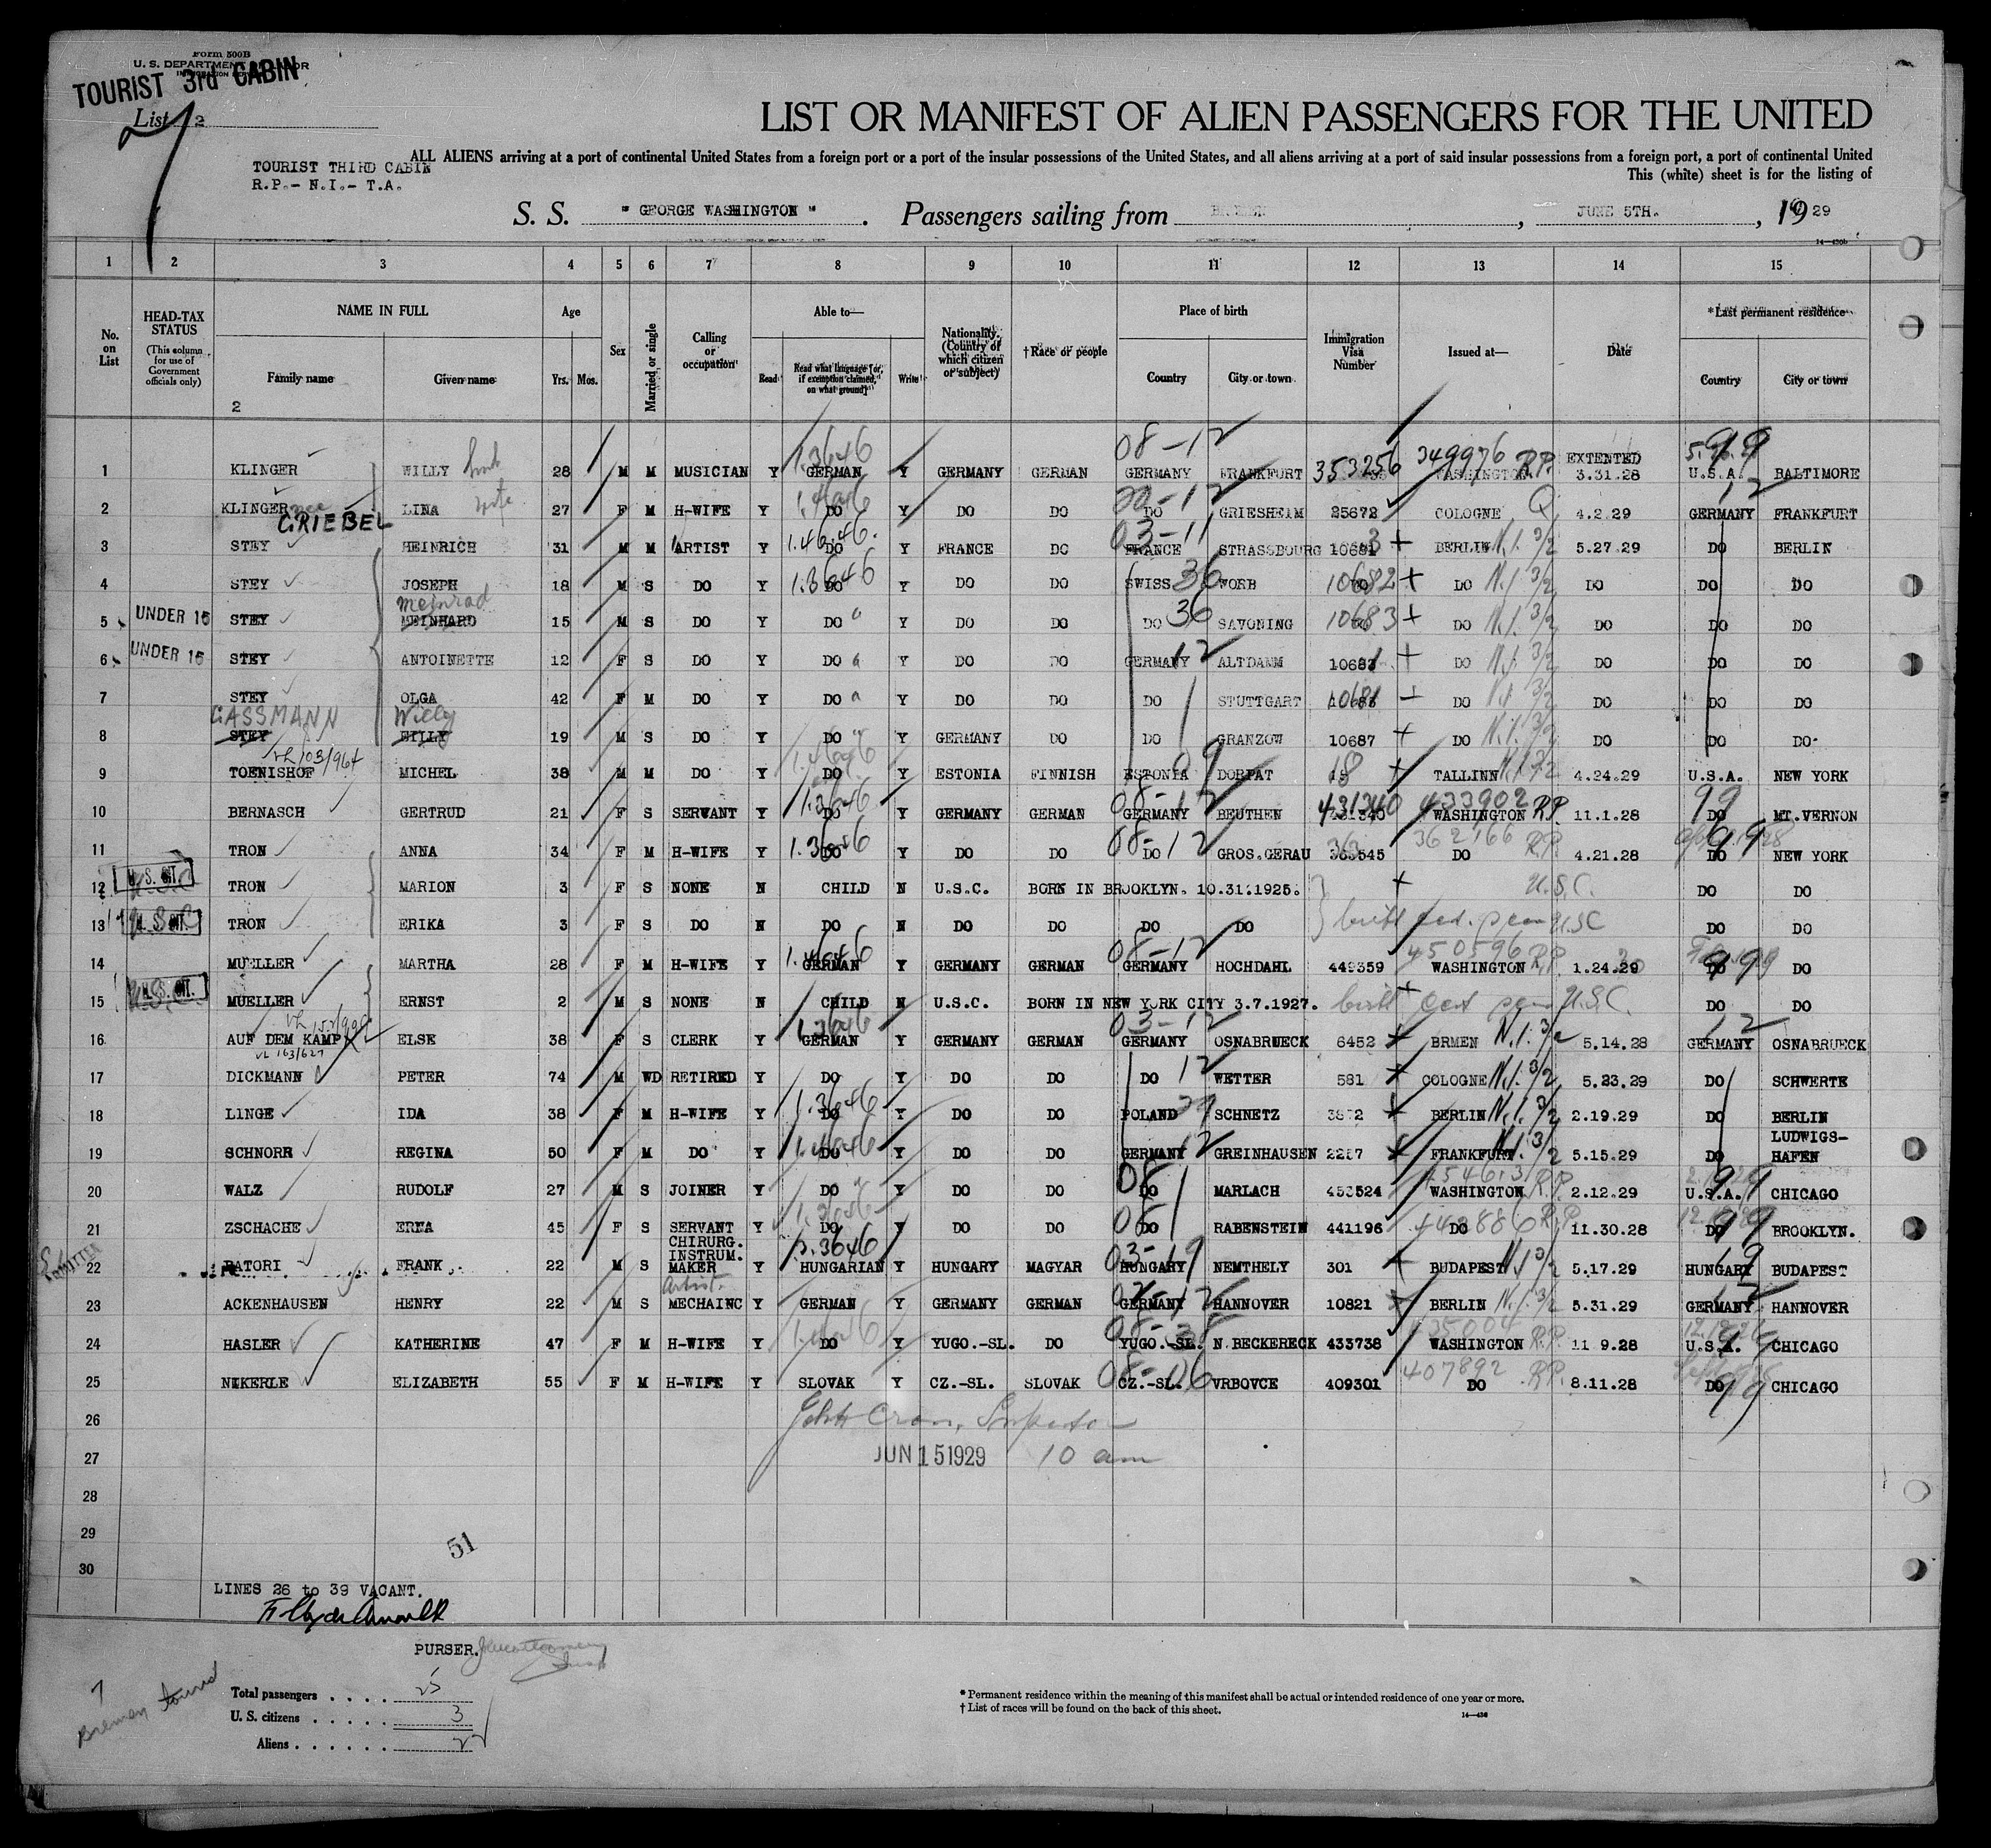 Form 500B
U. S. DEPARTMENT OF LABOR
IMMIGRATION SERVICE
TOURIST 3rd CABIN
List 2
7
LIST OR MANIFEST OF ALIEN PASSENGERS FOR THE UNITED
ALL ALIENS arriving at a port of continental United States from a foreign port or a port of the insular possessions of the United States, and all aliens arriving at a port of said insular possessions from a foreign port, a port of continental United
TOURIST THIRD CABIN
R.P.- N.I.- T.A.
This (white) sheet is for the listing of
S. S. "GEORGE WASHINGTON". Passengers sailing from BREMEN, JUNE 5TH., 1929
14—430b
1 2 3 4 5 6 7 8 9 10 11 12 13 14 15
No. on List
HEAD-TAX STATUS (This column for use of Government officials only)
NAME IN FULL Family name Given name
Age Yrs. Mos.
Sex
Married or single
Calling or occupation
Able to— Read Read what language [or, if exemption claimed, on what ground] Write
Nationality. (Country of which citizen or subject)
†Race or people
Place of birth Country City or town
Immigration Visa Number
Issued at—
Date
*Last permanent residence Country City or town
2
1 KLINGER WILLY 28 M M MUSICIAN Y GERMAN Y GERMANY GERMAN GERMANY FRANKFURT 353256 349976 WASHINGTON R.P. EXTENTED 3.31.28 U.S.A. BALTIMORE
2 KLINGER nee GRIEBEL LINA wife 27 F M H-WIFE Y DO Y DO DO DO GRIESHEIM 25672 COLOGNE Q 4.2.29 GERMANY FRANKFURT
3 STEY HEINRICH 31 M M ARTIST Y DO Y FRANCE DO FRANCE STRASSBOURG 10681 BERLIN N.I. 3/2 5.27.29 DO BERLIN
4 STEY JOSEPH 18 M S DO Y DO Y DO DO SWISS 36 WORB 10682 DO N.I. 3/2 DO DO DO
5 UNDER 16 STEY MEINHARD Meinrad 15 M S DO Y DO Y DO DO DO 36 SAVONING 10683 DO N.I. 3/2 DO DO DO
6 UNDER 16 STEY ANTOINETTE 12 F S DO Y DO Y DO DO GERMANY 12 ALTDAMM 10683 DO N.I. 3/2 DO DO DO
7 STEY OLGA 42 F M DO Y DO Y DO DO DO STUTTGART 10681 DO N.I. 3/2 DO DO DO
GASSMANN Willy
8 STEY BILLY 19 M S DO Y DO Y GERMANY DO DO GRANZOW 10687 DO N.I. 3/2 DO DO DO
9 TOENISHOF MICHEL 38 M M DO Y DO Y ESTONIA FINNISH ESTONIA 09 DORPAT 18 TALLINN N.I. 3/2 4.24.29 U.S.A. NEW YORK
10 BERNASCH GERTRUD 21 F S SERVANT Y DO Y GERMANY GERMAN GERMANY BEUTHEN 431340 433902 WASHINGTON R.P. 11.1.28 DO MT.VERNON
11 TRON ANNA 34 F M H-WIFE Y DO Y DO DO DO GROS.GERAU 363545 362166 DO R.P. 4.21.28 DO NEW YORK
12 U. S. CIT. TRON MARION 3 F S NONE N CHILD N U.S.C. BORN IN BROOKLYN. 10.31.1925. U.S.C. DO DO
13 U. S. CIT. TRON ERIKA 3 F S DO N DO N DO DO DO DO USC DO DO
14 MUELLER MARTHA 28 F M H-WIFE Y GERMAN Y GERMANY GERMAN GERMANY HOCHDAHL 449359 450596 WASHINGTON R.P. 1.24.29 DO DO
15 U. S. CIT. MUELLER ERNST 2 M S NONE N CHILD N U.S.C. BORN IN NEW YORK CITY 3.7.1927. U.S.C. DO DO
16 AUF DEM KAMP ELSE 38 F S CLERK Y GERMAN Y GERMANY GERMAN GERMANY OSNABRUECK 6452 BRMEN N.I. 3/2 5.14.28 GERMANY OSNABRUECK
VL 163/627
17 DICKMANN PETER 74 M WD RETIRED Y DO Y DO DO DO 12 WETTER 581 COLOGNE N.I. 3/2 5.23.29 DO SCHWERTE
18 LINGE IDA 38 F M H-WIFE Y DO Y DO DO POLAND SCHNETZ 3872 BERLIN N.I. 3/2 2.19.29 DO BERLIN
19 SCHNORR REGINA 50 F M DO Y DO Y DO DO GERMANY 12 GREINHAUSEN 2257 FRANKFURT. N.I. 3/2 5.15.29 DO LUDWIGS-HAFEN
20 WALZ RUDOLF 27 M S JOINER Y DO Y DO DO DO MARLACH 453524 454613 WASHINGTON R.P. 2.12.29 U.S.A. CHICAGO
21 ZSCHACHE ERNA 45 F S SERVANT Y DO Y DO DO DO RABENSTEIN 441196 442886 DO R.P. 11.30.28 DO BROOKLYN.
22 BATORI FRANK 22 M S CHIRURG. INSTRUM. MAKER Y HUNGARIAN Y HUNGARY MAGYAR HUNGARY NEMTHELY 301 BUDAPEST N.I. 3/2 5.17.29 HUNGARY BUDAPEST
Artist.
23 ACKENHAUSEN HENRY 22 M S MECHAINC Y GERMAN Y GERMANY GERMAN GERMANY HANNOVER 10821 BERLIN N.I. 3/2 5.31.29 GERMANY HANNOVER
24 HASLER KATHERINE 47 F M H-WIFE Y DO Y YUGO.-SL. DO YUGO.-SL. N.BECKERECK 433738 WASHINGTON R.P. 11 9.28 U.S.A. CHICAGO
25 NIKERLE ELIZABETH 55 F M H-WIFE Y SLOVAK Y CZ.-SL. SLOVAK CZ.-SL. VRBOVCE 409301 407892 DO R.P. 8.11.28 DO CHICAGO
26
27 JUN 15 1929 10 am
28
29
30
51
LINES 26 to 39 VACANT.
PURSER.
Bremen tourist
Total passengers . . . . 25
U. S. citizens . . . . . 3
Aliens . . . . . . 22
* Permanent residence within the meaning of this manifest shall be actual or intended residence of one year or more.
† List of races will be found on the back of this sheet.
14—430